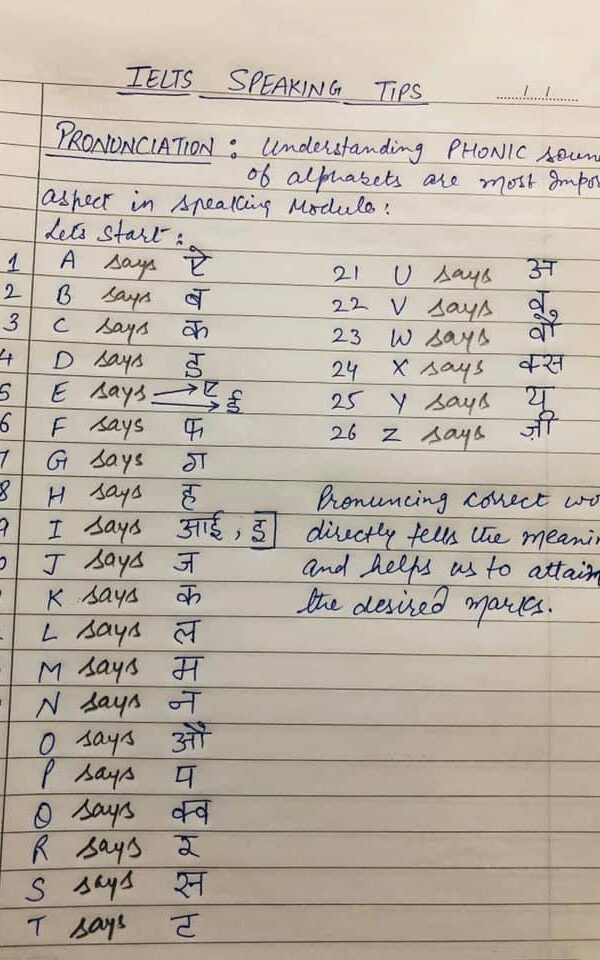 IELTS SPEAKING TIPS
PRONUNCIATION : Understanding PHONIC soun
of alphabets are most Impor
aspect in speaking Module:
Lets Start:
1 A says ऐ
2 B says ब
3 C says क
4 D says ड
5 E says ए
ई
6 F says फ
7 G says ग
8 H says ह
9 I says आई, इ
J says ज
K says क
L says ल
M says म
N says न
O says औ
P says प
Q says क्व
R says र
S says स
T says ट
21 U says अ
22 V says व
23 W says वौ
24 X says क्स
25 Y says य
26 Z says ज़ी
Pronuncing correct wo
directly tells the meanin
and helps us to attain
the desired marks.